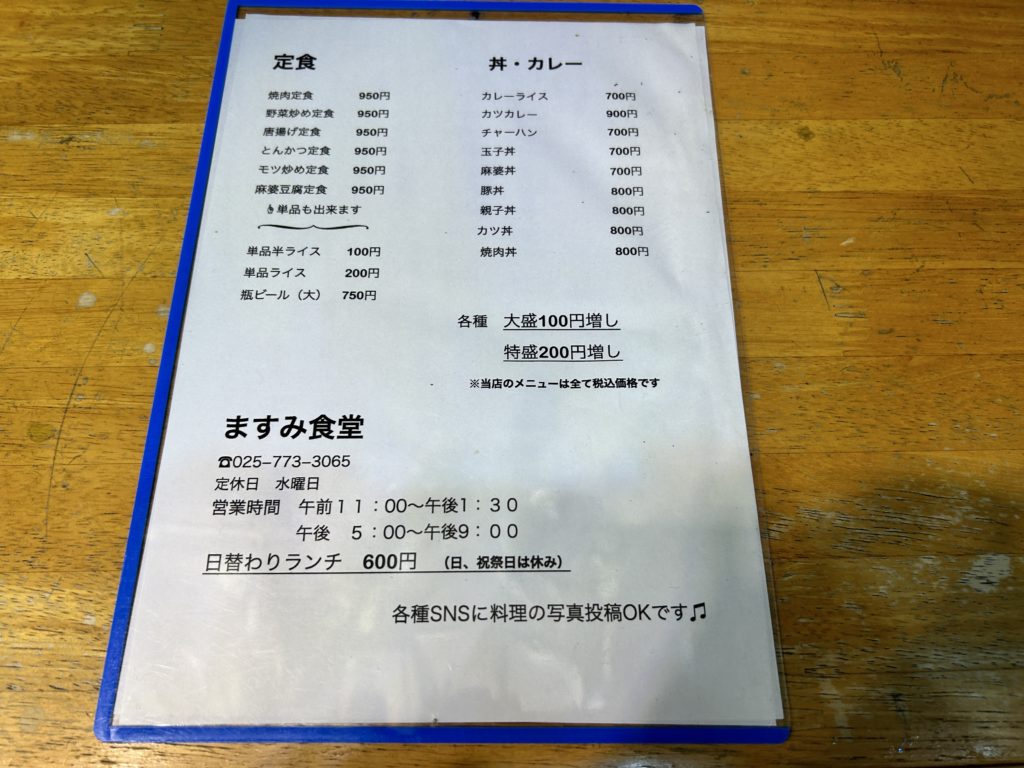 定食
焼肉定食 950円
野菜炒め定食 950円
唐揚げ定食 950円
とんかつ定食 950円
モツ炒め定食 950円
麻婆豆腐定食 950円
☝単品も出来ます
単品半ライス 100円
単品ライス 200円
瓶ビール（大） 750円
丼・カレー
カレーライス 700円
カツカレー 900円
チャーハン 700円
玉子丼 700円
麻婆丼 700円
豚丼 800円
親子丼 800円
カツ丼 800円
焼肉丼 800円
各種 大盛100円増し
特盛200円増し
※当店のメニューは全て税込価格です
ますみ食堂
☎025−773−3065
定休日 水曜日
営業時間 午前１１：００〜午後１：３０
午後 ５：００〜午後９：００
日替わりランチ 600円 （日、祝祭日は休み）
各種SNSに料理の写真投稿OKです♫